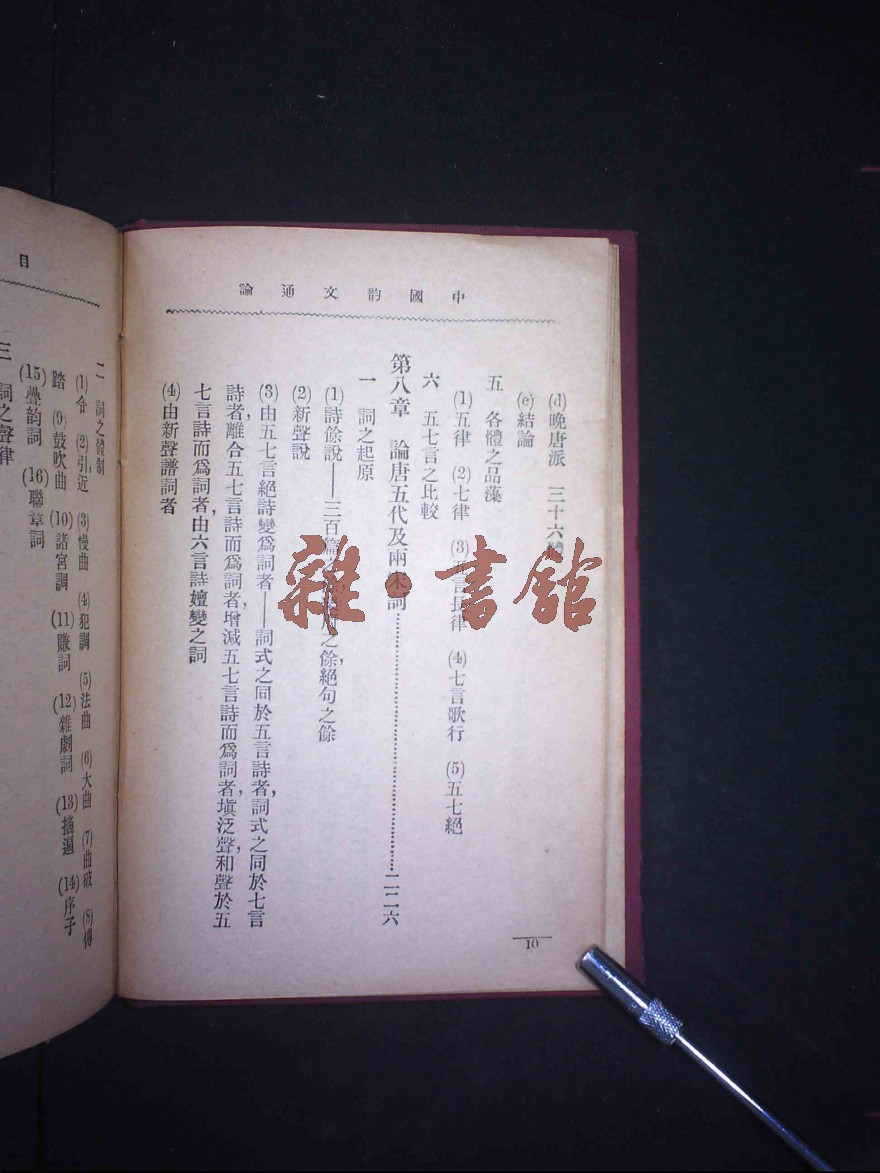 中國韵文通論
(d)晚唐派　三十六體
(e)結論
五　各體之品藻
(1)五律　(2)七律　(3)五言長律　(4)七言歌行　(5)五七絕
六　五七言之比較
第八章　論唐五代及兩宋詞……二二六
一　詞之起原
(1)詩餘說——三百篇之餘絕句之餘
(2)新聲說
(3)由五七言絕詩變爲詞者——詞式之同於五言詩者,詞式之同於七言
詩者,離合五七言詩而爲詞者,增減五七言詩而爲詞者,塡泛聲,和聲於五
七言詩而爲詞者,由六言詩嬗變之詞
(4)由新聲譜詞者
10
目
二　詞之體制
(1)令　(2)引近　(3)慢曲　(4)犯調　(5)法曲　(6)大曲　(7)曲破　(8)傳
踏　(9)鼓吹曲　(10)諸宮調　(11)賺詞　(12)雜劇詞　(13)摘遍　(14)序子
(15)疊韵詞　(16)聯章詞
三　詞之聲律
雜·書館